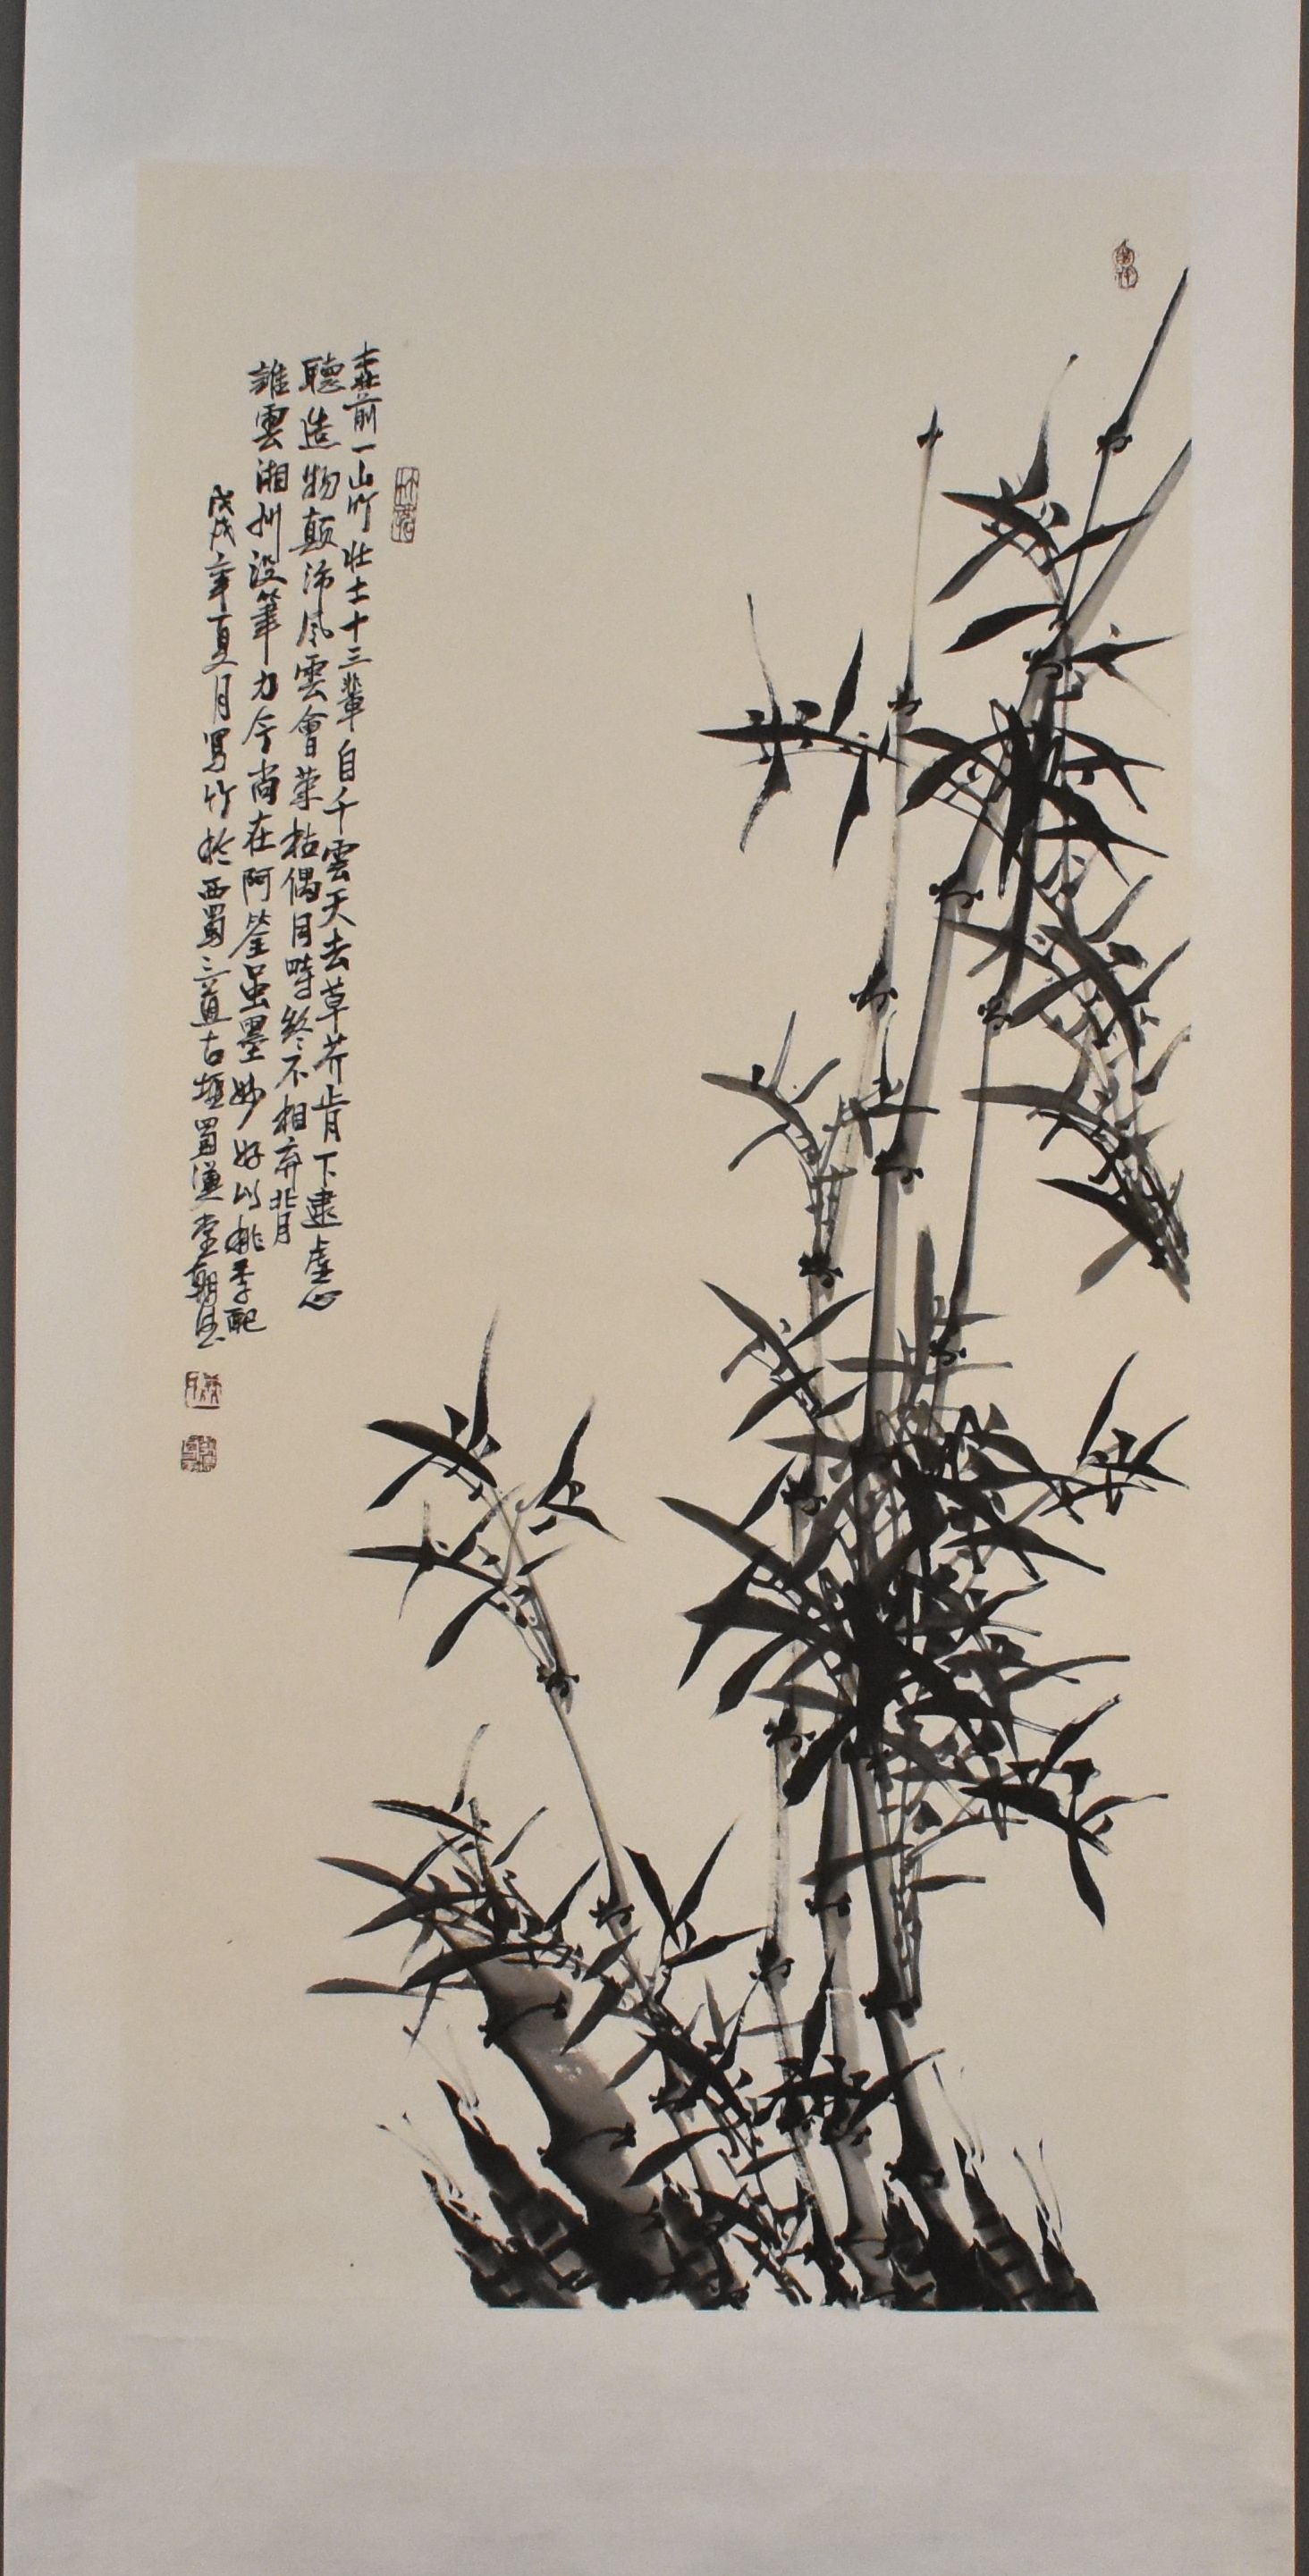 壺前一山竹壯士十三輩自千雲天去草芥肯下逮虛心
聽造物顛沛風雲會榮枯偶同時終不相棄背
誰雲湘州沒筆力今尚在阿筌雖墨妙好以桃李配
戊戌年夏月寫竹於西蜀三道古堰蜀漢堂朝